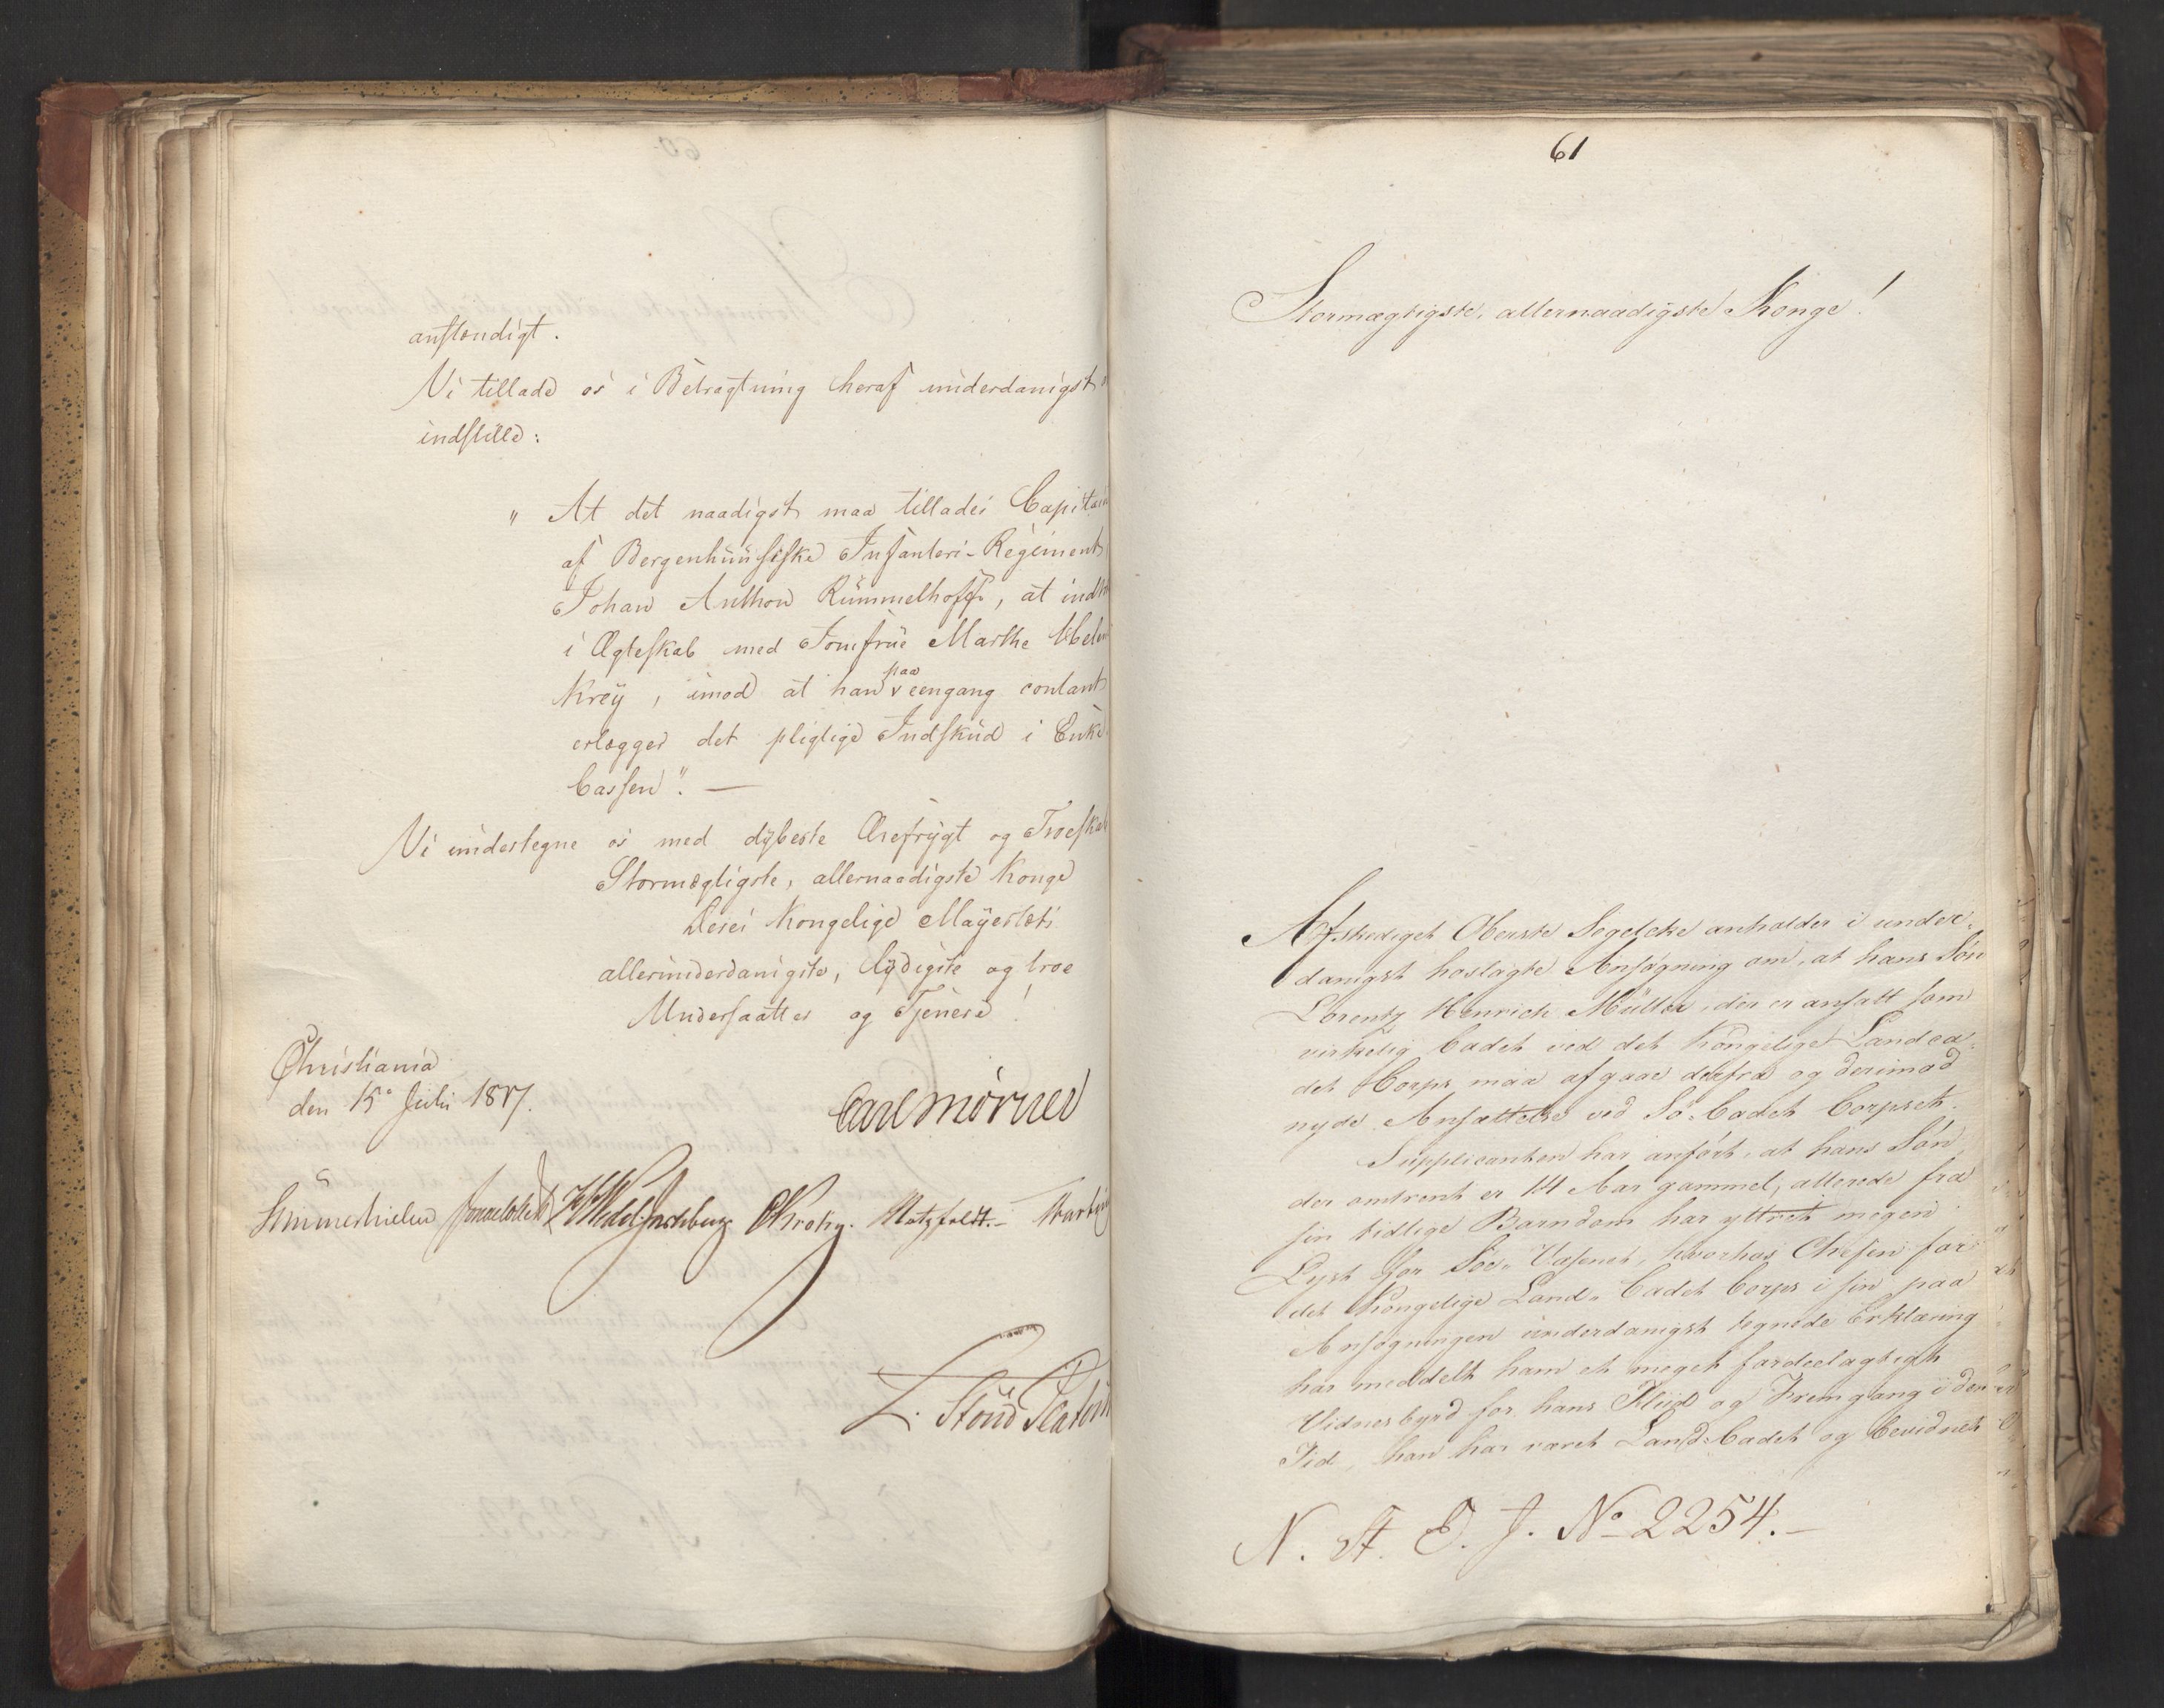 anstændigt.
Vi tillade os i Betragtning heraf underdanigst
indstille:
" At det naadigst maa tillades Capitain
af Bergenhuusiske Infanteri-Regiment
Johan Anthon Rummelhoff, at indtr
i Ægteskab med Jomfrue Marthe Abel
Krey, imod at han paa eengang contant
erlægger det pligtige Indskud i Enke
Cassen". —
Vi undertegne os med dybeste Ærefrygt og Troeskab
Stormægtigste, allernaadigste Konge
Deres Kongelige Mayestæts
allerunderdanigste, lydigste og troe
Undersaatter og Tjenere!
Christiania
den 15de Juli 1817.
Carl Mörner
Sommerhielm HWedel Jarlsberg CKrohg. Motzfeldt.
L. Stoud Platou
61
Stormægtigste, allernaadigste Konge!
Afskediget Oberste Segelcke anholder i under-
danigst hoslagte Ansøgning om, at hans Søn
Lorentz Henrich Müller, der er ansatt som
virkelig Cadet ved det Kongelige Landca-
det Corps maa afgaae derfra og derimod
nyde Ansættelse ved Sö-Cadet Corpset.
Supplicanten har anført, at hans Søn,
der omtrent er 14 Aar gammel, allerede fra
sin tidlige Barndom har yttret megen
Lyst for Söe-Væsenet, hvorhos Chefen for
det Kongelige Land-Cadet Corps i sin paa
Ansøgningen underdanigst tegnede Erklæring
har meddelt ham et meget fordeelagtigt
Vidnesbyrd for hans Fliid og Fremgang i den
Tid, han har været Land-Cadet og bevidnet
N. A. E. J. No 2254. —